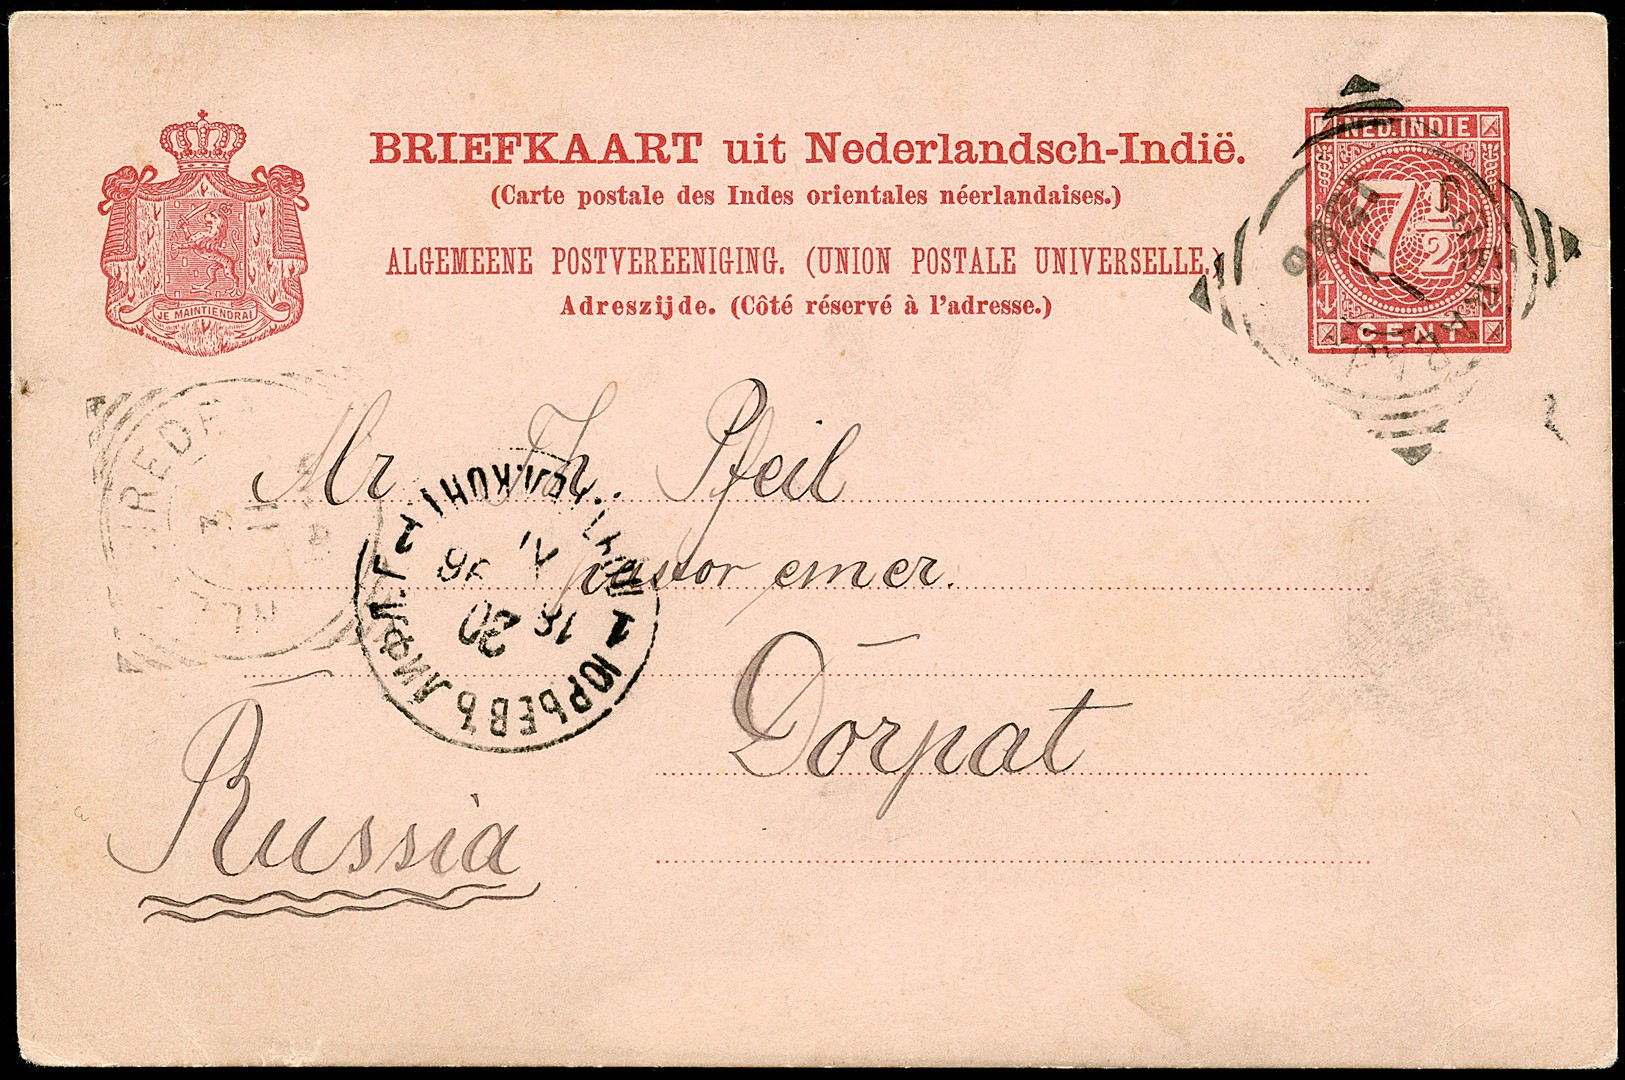 BRIEFKAART uit Nederlandsch-Indië.
(Carte postale des Indes orientales néerlandaises.)
ALGEMEENE POSTVEREENIGING. (UNION POSTALE UNIVERSELLE.)
Adreszijde. (Côté réservé à l'adresse.)
JE MAINTIENDRAI
NED. INDIE
7 1/2
CENT
Mr Th. Pfeil
pastor emer.
Dorpat
Russia
ЮРЬЕВЪ ЛИФЛ. Г.
20